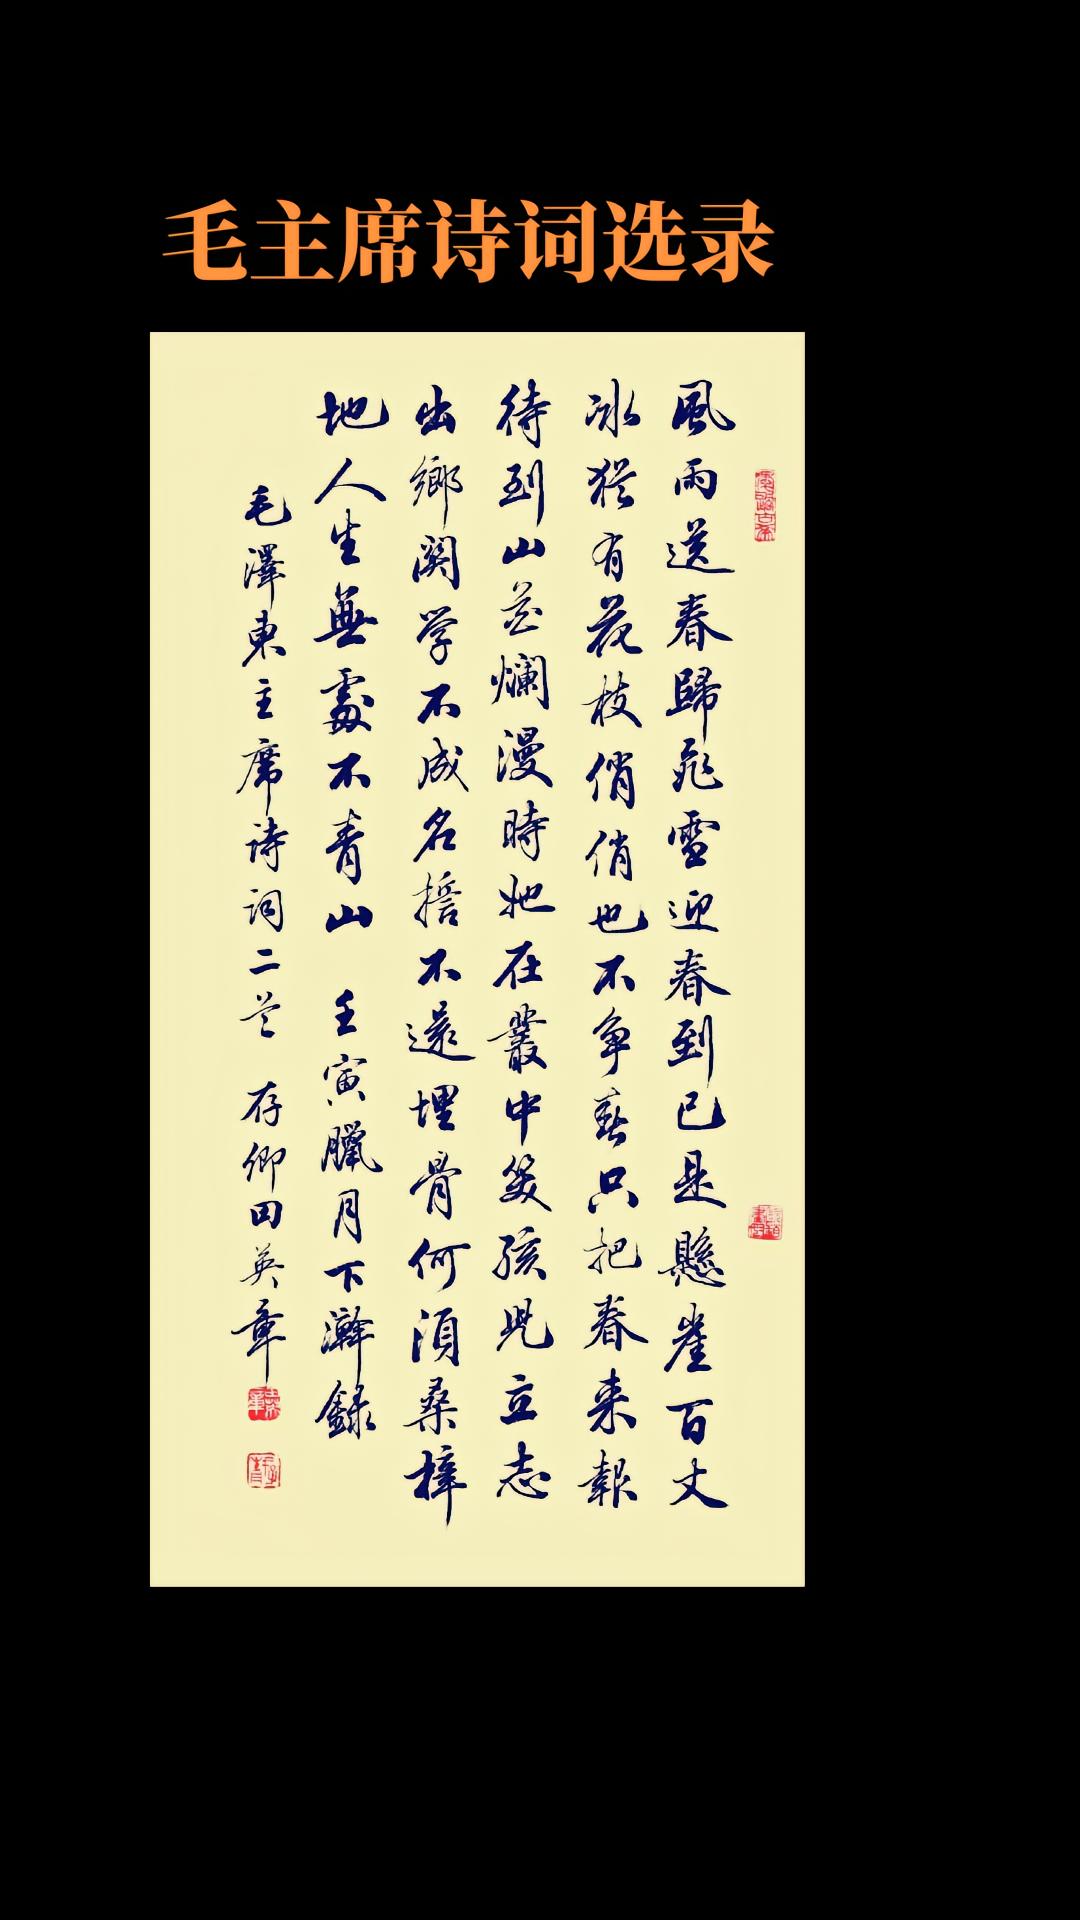 毛主席诗词选录
風雨送春歸飛雪迎春到已是懸崖百丈
冰猶有花枝俏俏也不争春只把春来報
待到山花爛漫時她在叢中笑孩児立志
出鄉関学不成名誓不還埋骨何須桑梓
地人生無處不青山 壬寅臘月下澣録
毛澤東主席诗词二首 存卿田英章